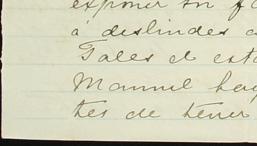 exponer en fa
á deslindes a
Gales el esta
Manuel hay
tes de tener